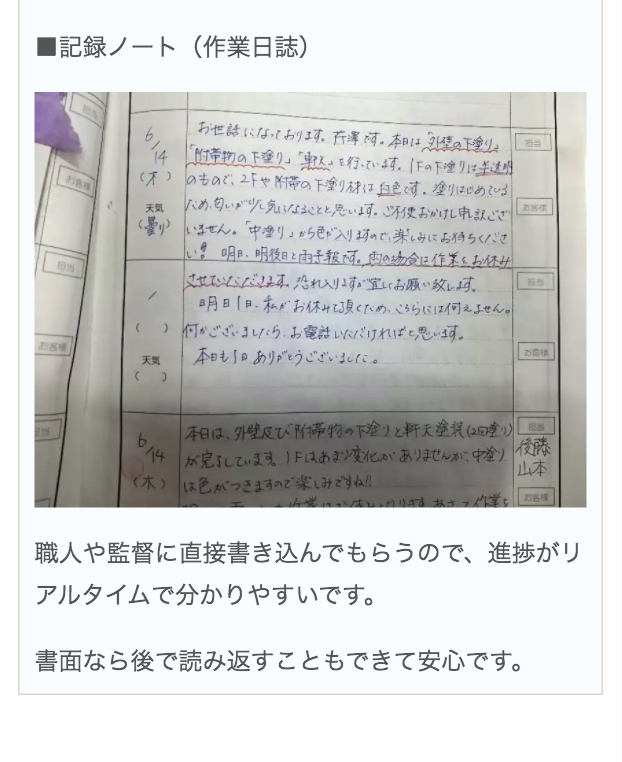 ■記録ノート（作業日誌）
担当
お客様
担当
お客様
担当
お客様
6/14
(木)
天気
(曇り)
お世話になっております。芹澤です。本日は「外壁の下塗り」
「附帯物の下塗り」「軒天」を行っています。1Fの下塗りは半透明
のもので、2Fや附帯の下塗り材は白色です。塗りはじめている
ため、匂いが少し気になることと思います。ご不便おかけし申訳ござ
いません。「中塗り」から色が入りますので、楽しみにお待ちくださ
い!! 明日、明後日と雨予報です。雨の場合は作業をお休み
させていただきます。恐れ入りますが宜しくお願い致します。
明日1日、私がお休みを頂くため、こちらには伺えません。
何かございましたら、お電話いただければと思います。
本日も1日ありがとうございました。
担当
お客様
/
( )
天気
( )
担当
お客様
6/14
(木)
本日は、外壁及び附帯物の下塗りと軒天塗装(2回塗り)
が完了しています。1Fはあまり変化がありませんが、中塗り
は色がつきますので楽しみですね!!
担当
後藤
山本
お客様
職人や監督に直接書き込んでもらうので、進捗がリ
アルタイムで分かりやすいです。
書面なら後で読み返すこともできて安心です。